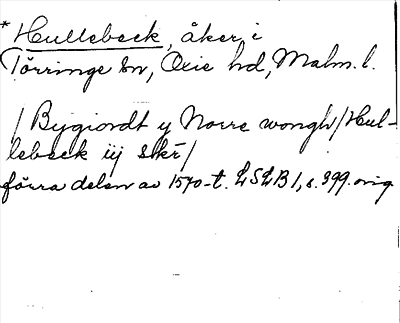 * Hullebeck, åker, i
Törringe sn, Oxie hd, Malm. l.
/ Bygiordt y Norre wongh / Hul-
lebeck iij skr /
förra delen av 1570-t. LSLB 1, s. 399. orig